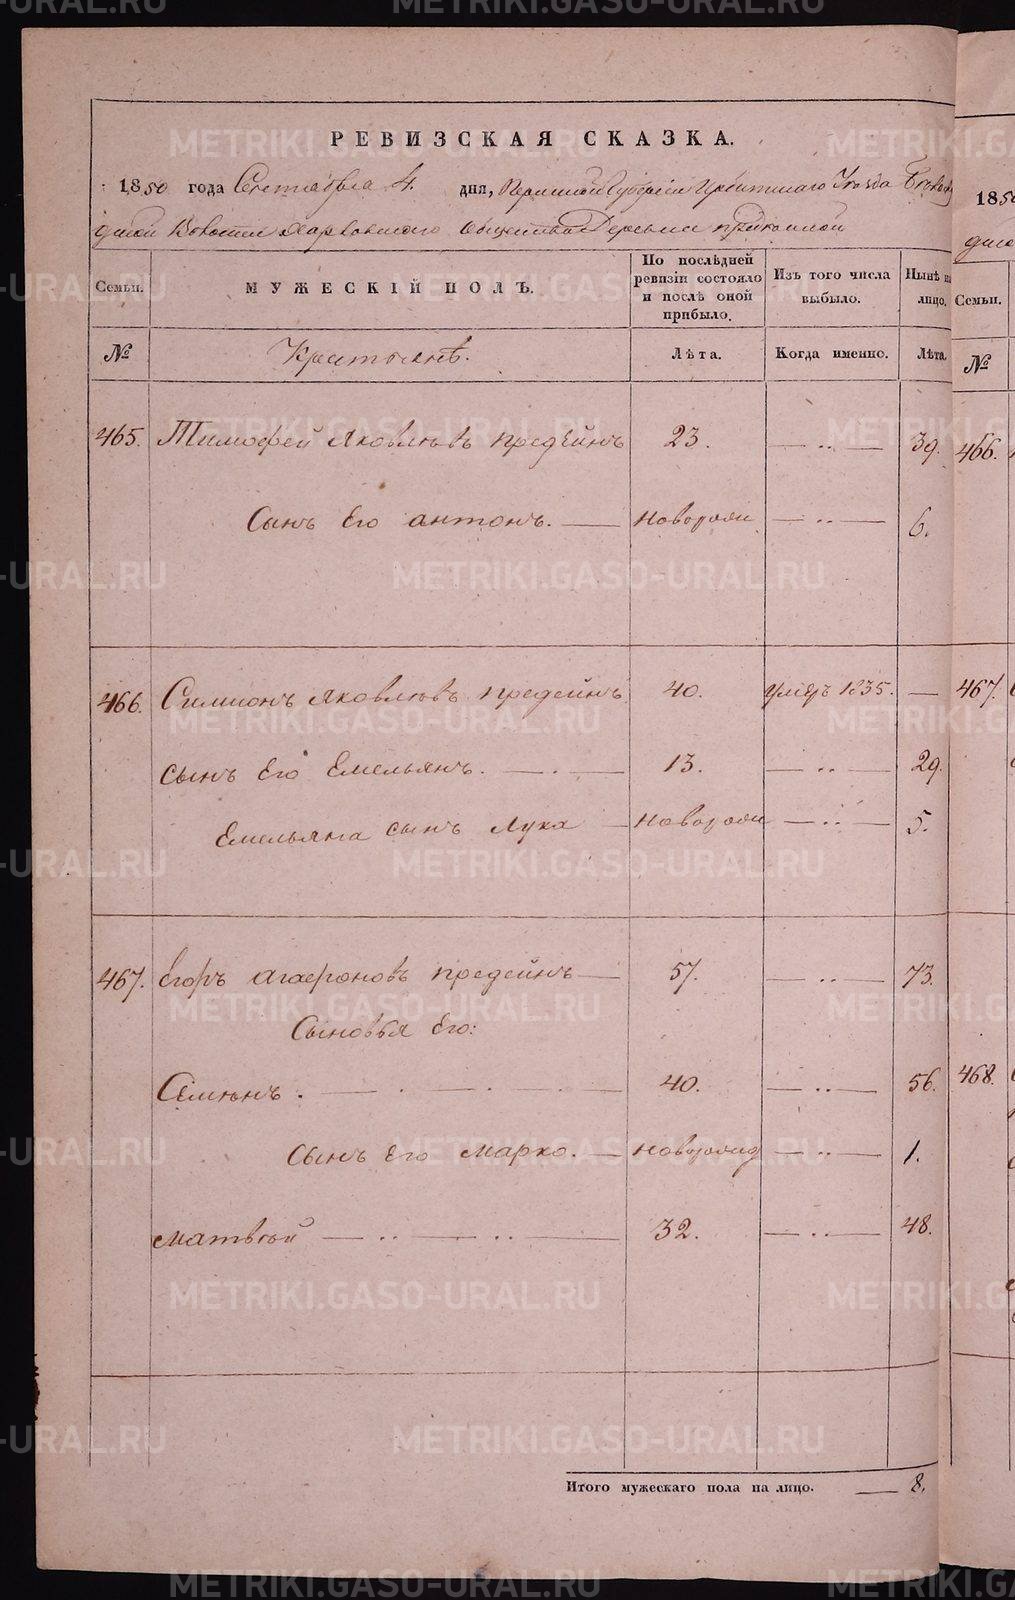 РЕВИЗСКАЯ СКАЗКА.
1850 года Сентября 4. дня, Пермской Губернии Ирбитскаго Уезда
Волости Харловскаго Общества Деревни
Семьи. МУЖЕСКІЙ ПОЛЪ. По послѣдней ревизіи состояло и послѣ оной прибыло. Изъ того числа выбыло. Нынѣ на лицо.
№ Крестьянѣ. Лѣта. Когда именно. Лѣта.
465. Тимофей Яковлювъ предѣинъ 23. — .. — 39.
Сынъ Его антонъ. — новорожд — .. — 6.
466. Симионъ Яковлювъ предеинъ 40. умѣръ 1835. —
сынъ Его Емельянъ. — . — 13. — .. — 29.
Емельяна сынъ Лука — новорожд — .. — 5.
467. Егоръ агафоновъ предеинъ — 57. — .. — 73.
Сыновья Его:
Сѣмюнъ . — . — . — 40. — .. — 56.
сынъ Его марко. — новорожд — .. — 1.
матвѣй — .. — .. — 32. — .. — 48.
Итого мужескаго пола на лицо. — 8.
1850
Семьи.
№
466.
467.
468.
METRIKI.GASO-URAL.RU